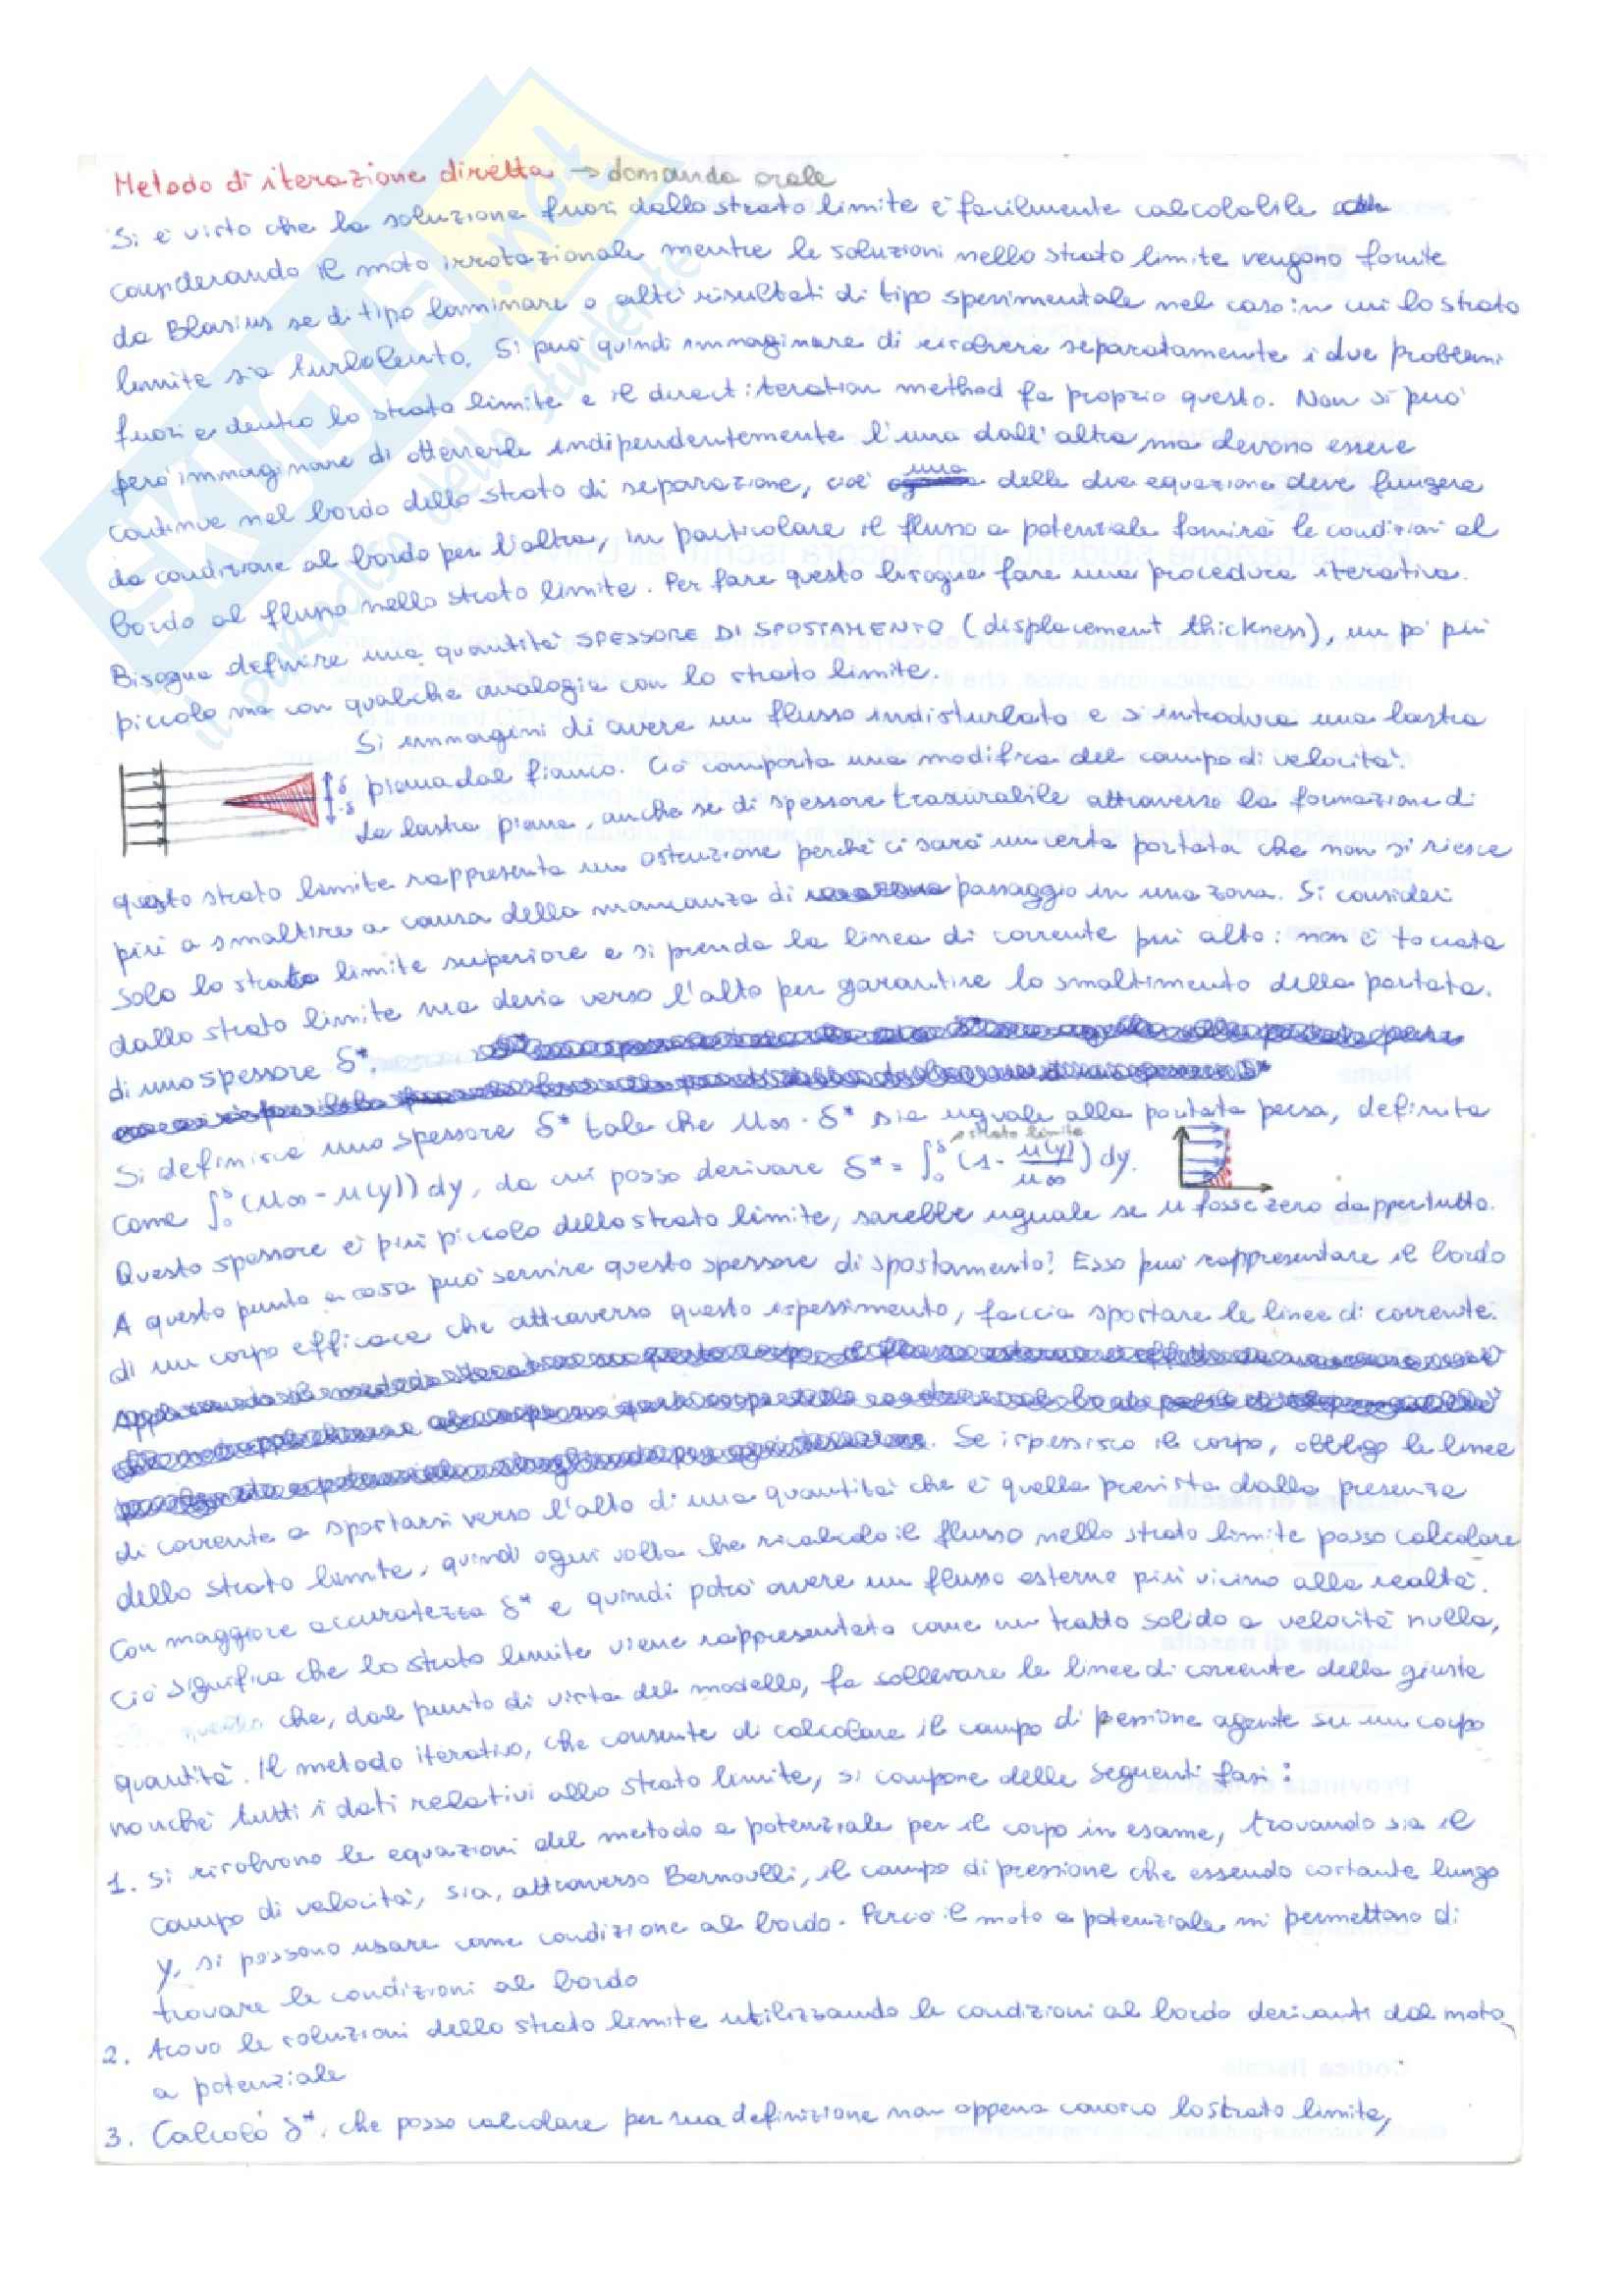 Metodo di iterazione diretta → domanda orale
Si è visto che la soluzione fuori dallo strato limite è facilmente calcolabile
considerando il moto irrotazionale mentre le soluzioni nello strato limite vengono fornite
da Blasius se di tipo laminare o altri risultati di tipo sperimentale nel caso in cui lo strato
limite sia turbolento. Si può quindi immaginare di risolvere separatamente i due problemi
fuori e dentro lo strato limite e il direct iteration method fa proprio questo. Non si può
però immaginare di ottenerle indipendentemente l'una dall'altra ma devono essere
continue nel bordo dello strato di separazione, cioè una delle due equazione deve fungere
da condizione al bordo per l'altra, in particolare il flusso a potenziale fornirà le condizioni al
bordo al flusso nello strato limite. Per fare questo bisogna fare una procedura iterativa.
Bisogna definire una quantità SPESSORE DI SPOSTAMENTO (displacement thickness), un po' più
piccolo ma con qualche analogia con lo strato limite.
Si immagini di avere un flusso indisturbato e si introduca una lastra
piana dal fianco. Ciò comporta una modifica del campo di velocità.
La lastra piana, anche se di spessore trascurabile attraverso la formazione di
δ
-δ
questo strato limite rappresenta un ostruzione perchè ci sarà un certa portata che non si riesce
più a smaltire a causa della mancanza di passaggio in una zona. Si consideri
solo lo strato limite superiore e si prenda la linea di corrente più alta: non è toccata
dallo strato limite ma devia verso l'alto per garantire lo smaltimento della portata.
di uno spessore δ*.
Si definisce uno spessore δ* tale che u∞ · δ* sia uguale alla portata persa, definita
come ∫₀^δ (u∞ - u(y)) dy, da cui posso derivare δ* = ∫₀^δ (1 - u(y)/u∞) dy.
strato limite
Questo spessore è più piccolo dello strato limite, sarebbe uguale se u fosse zero dappertutto.
A questo punto a cosa può servire questo spessore di spostamento? Esso può rappresentare il bordo
di un corpo efficace che attraverso questo ispessimento, faccia spostare le linee di corrente.
Se ispessisco il corpo, obbligo le linee
di corrente a spostarsi verso l'alto di una quantità che è quella prevista dalla presenza
dello strato limite, quindi ogni volta che ricalcolo il flusso nello strato limite posso calcolare
con maggiore accuratezza δ* e quindi potrò avere un flusso esterno più vicino alla realtà.
Ciò significa che lo strato limite viene rappresentato come un tratto solido a velocità nulla,
che, dal punto di vista del modello, fa sollevare le linee di corrente della giusta
quantità. Il metodo iterativo, che consente di calcolare il campo di pressione agente su un corpo
nonchè tutti i dati relativi allo strato limite, si compone delle seguenti fasi:
1. Si risolvono le equazioni del metodo a potenziale per il corpo in esame, trovando sia il
campo di velocità, sia, attraverso Bernoulli, il campo di pressione che essendo costante lungo
y, si possono usare come condizione al bordo. Perciò il moto a potenziale mi permettono di
trovare le condizioni al bordo
2. Trovo le soluzioni dello strato limite utilizzando le condizioni al bordo derivanti dal moto
a potenziale
3. Calcolo δ*, che posso calcolare per sua definizione non appena conosco lo strato limite,
SKUOLA.net
il paradiso dello studente